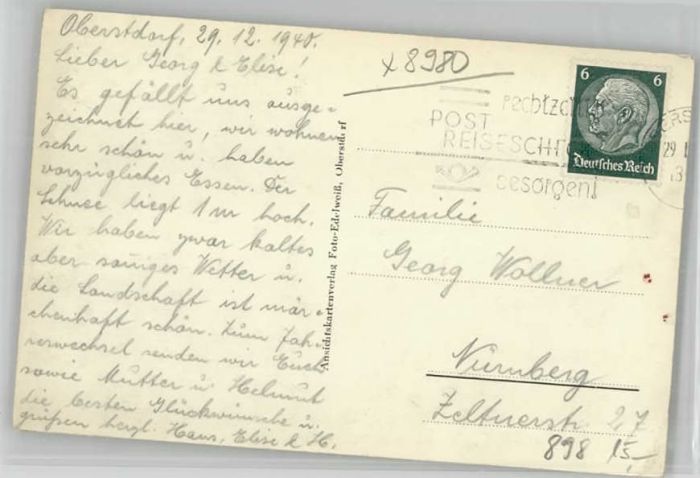 Oberstdorf, 29. 12. 1940.
Lieber Georg & Elise!
Es gefällt uns ausge-
zeichnet hier, wir wohnen
sehr schön u. haben
vorzügliches Essen. Der
Schnee liegt 1 m hoch.
Wir haben zwar kaltes
aber sonniges Wetter u.
die Landschaft ist mär-
chenhaft schön. Zum Jah-
reswechsel senden wir Euch
sowie Mutter u. Helmut
die besten Glückwünsche u.
grüßen herzl. Hans, Elise & H.
Ansichtskartenverlag Foto-Edelweiß, Oberstdorf
x 8980
rechtzei
POST
REISESCH
besorgen!
6 6
Deutsches Reich
29
Familie
Georg Wollner
Nürnberg
Zeltnerstr. 27
898 15,-